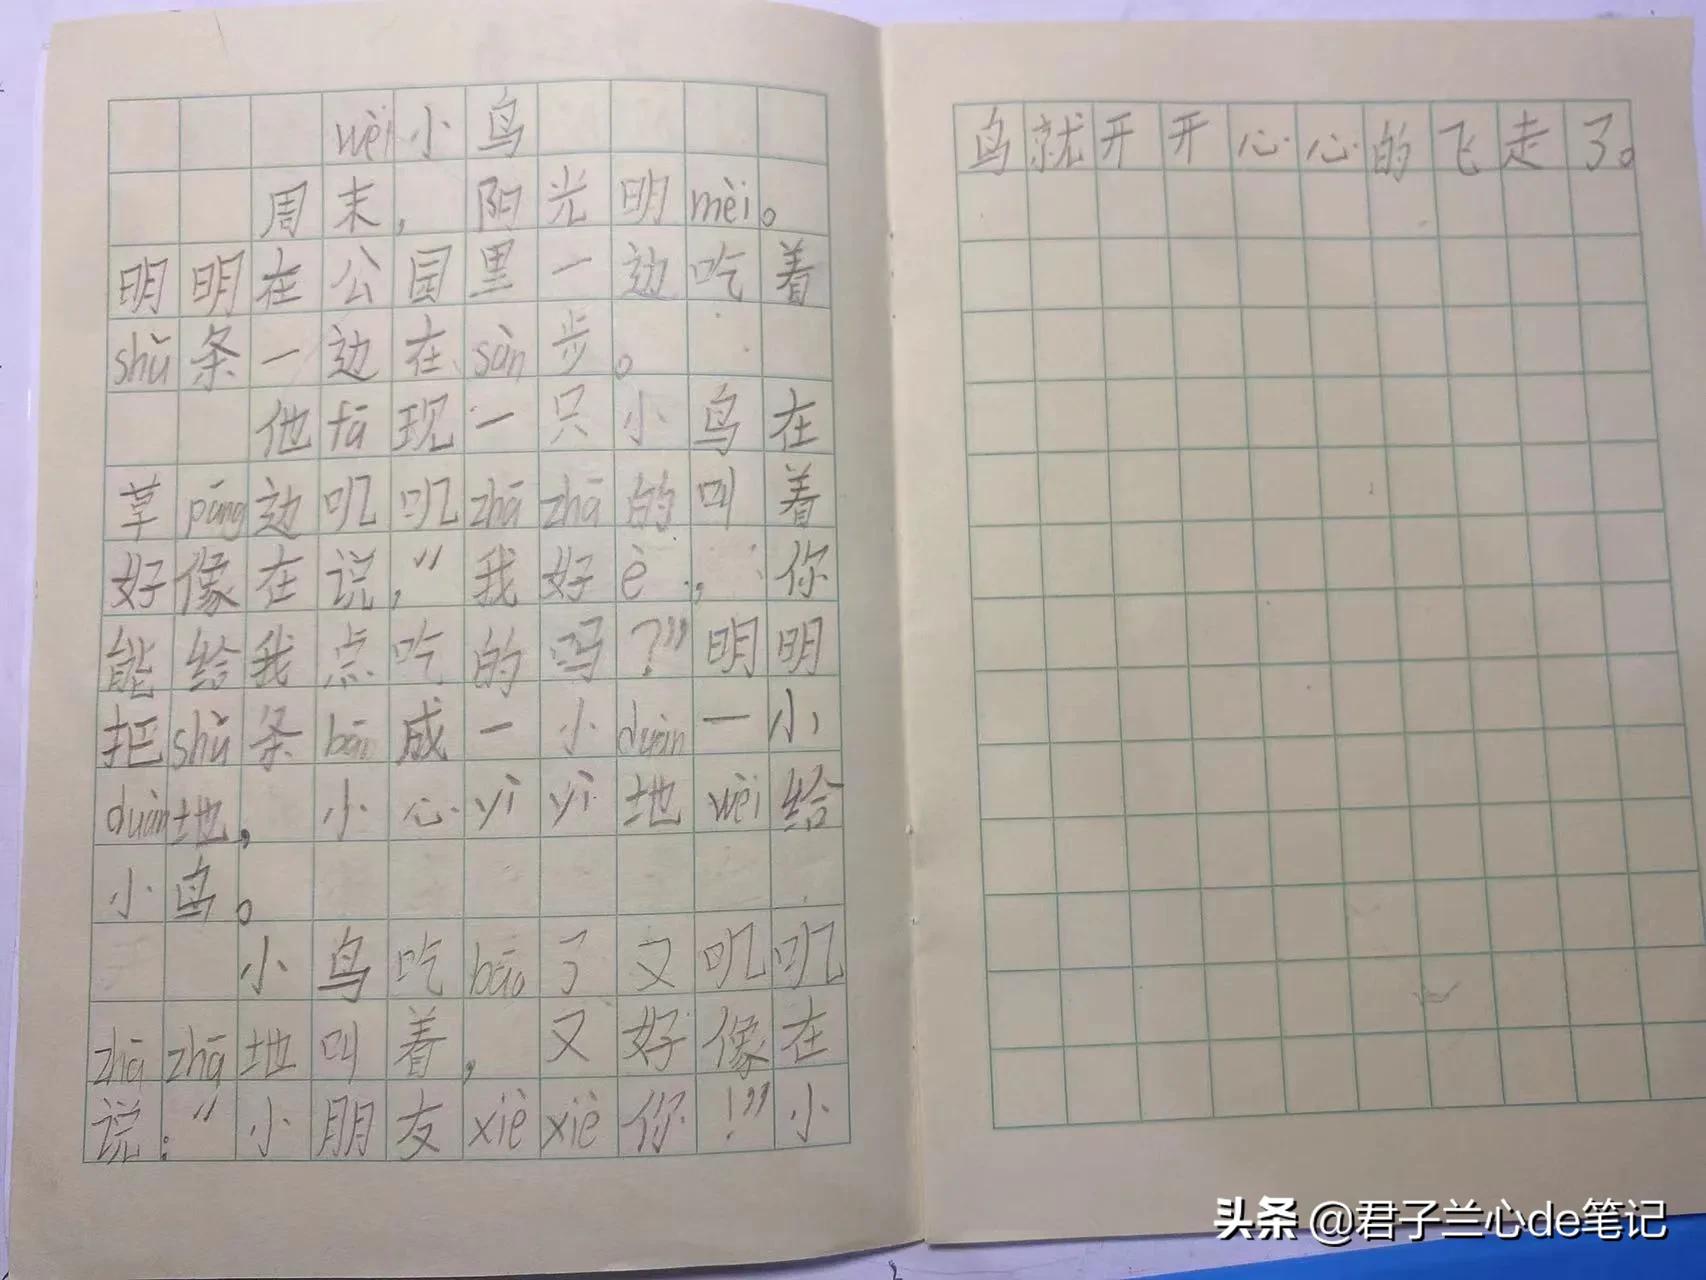 wèi小鸟
周末，阳光明mèi。
明明在公园里一边吃着
shǔ条一边在sàn步。
他fā现一只小鸟在
草páng边叽叽zhā zhā的叫着
好像在说，“我好è，你
能给我点吃的吗？”明明
把shǔ条bāi成一小duàn一小
duàn地，小心yì yì地wèi给
小鸟。
小鸟吃bǎo了又叽叽
zhā zhā地叫着，又好像在
说：“小朋友xiè xiè你！”小
鸟就开开心心的飞走了。
头条 @君子兰心de笔记